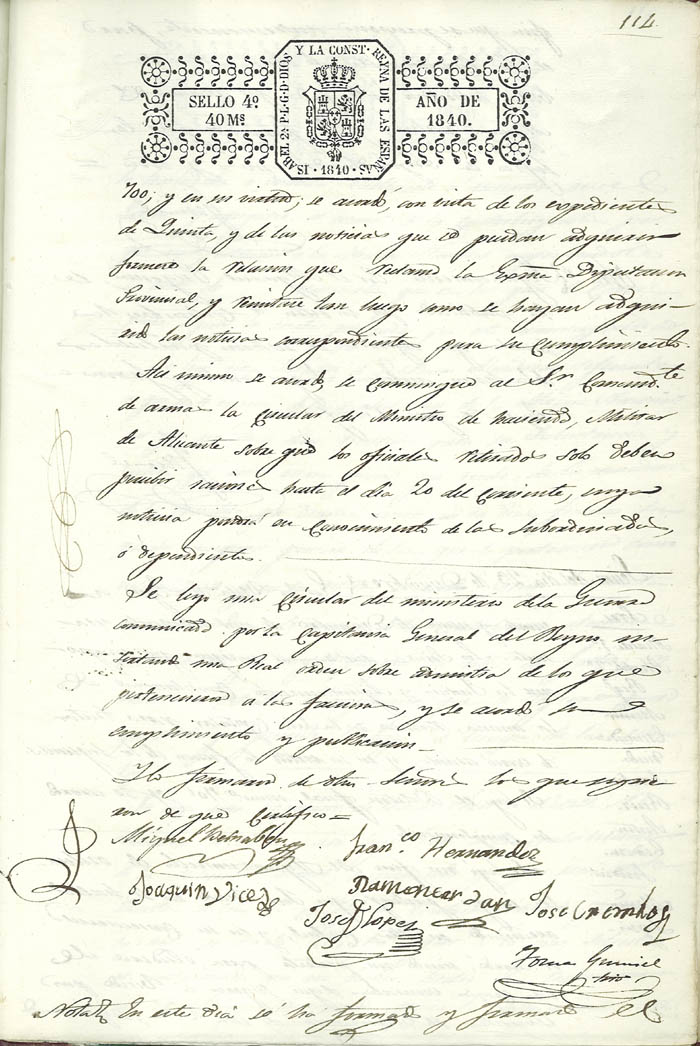 114
Y LA CONST. REYNA DE LAS ESPAÑAS
ISABEL 2ª P.L.G.D.DIOS
SELLO 4º
40 Ms
AÑO DE
1840.
1840
700; y en su vista; se acordó, con vista de los expedientes
de Quinta, y de las noticias que se puedan adquirir
formese la relacion que reclama la Exma. Diputacion
Provincial, y remitase tan luego como se hayan adqui-
rido las noticias correspondientes para su cumplimiento.
Asi mismo se acordó, se comunique al Sr. Comandte
de armas la circular del Ministro de hacienda Militar
de Alicante sobre que los oficiales retirados solo deben
percibir raciones hasta el dia 20 del corriente, cuya
noticia pondrá en conocimiento de los subordinados,
ó dependientes.
Se leyó una circular del ministerio de la Guerra
comunicada por la Capitania General del Reyno in-
sertando una Real orden sobre amnistia de los que
pertenecieron a la faccion, y se acordó su
cumplimiento y publicacion.
Y lo firmaron de dhos Señores los que supie-
ron de que certifico=
Miguel Bernabeu
Franco Hernandez
Joaquin Vicedo
Ramon
Jose
Jose Lopez
Nota En este dia se ha formado y firmado el